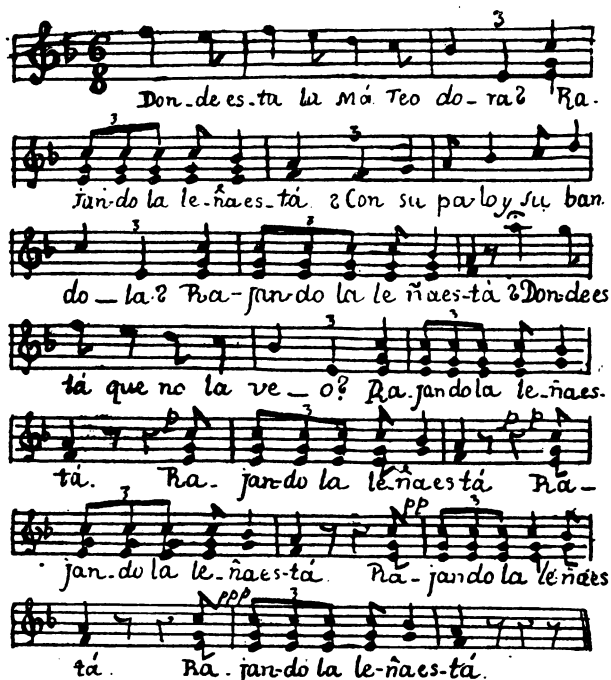 6 8 3
Don-de es-ta la Má Teo do-ra? Ra-
3 3
jan-do la le-ña es-tá. ? Con su pa-lo y su ban
3 3
do-la? Ra-jan-do la le ña es-tá ? Don de es
3 3
tá que no la ve-o? Ra-jan do la le-ña es-
p 3 p p
tá. Ra-jan-do la le-ña es tá Ra-
3 pp 3
jan-do la le-ña es-tá. Ra-jan do la le-ña es
ppp 3
tá. Ra-jan-do la le-ña es-tá.